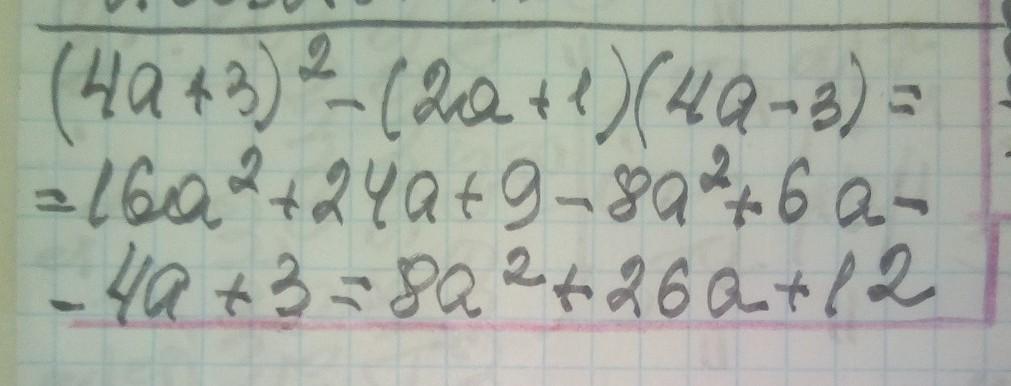 (4a+3)²-(2a+1)(4a-3)=
=16a²+24a+9-8a²+6a-
-4a+3=8a²+26a+12